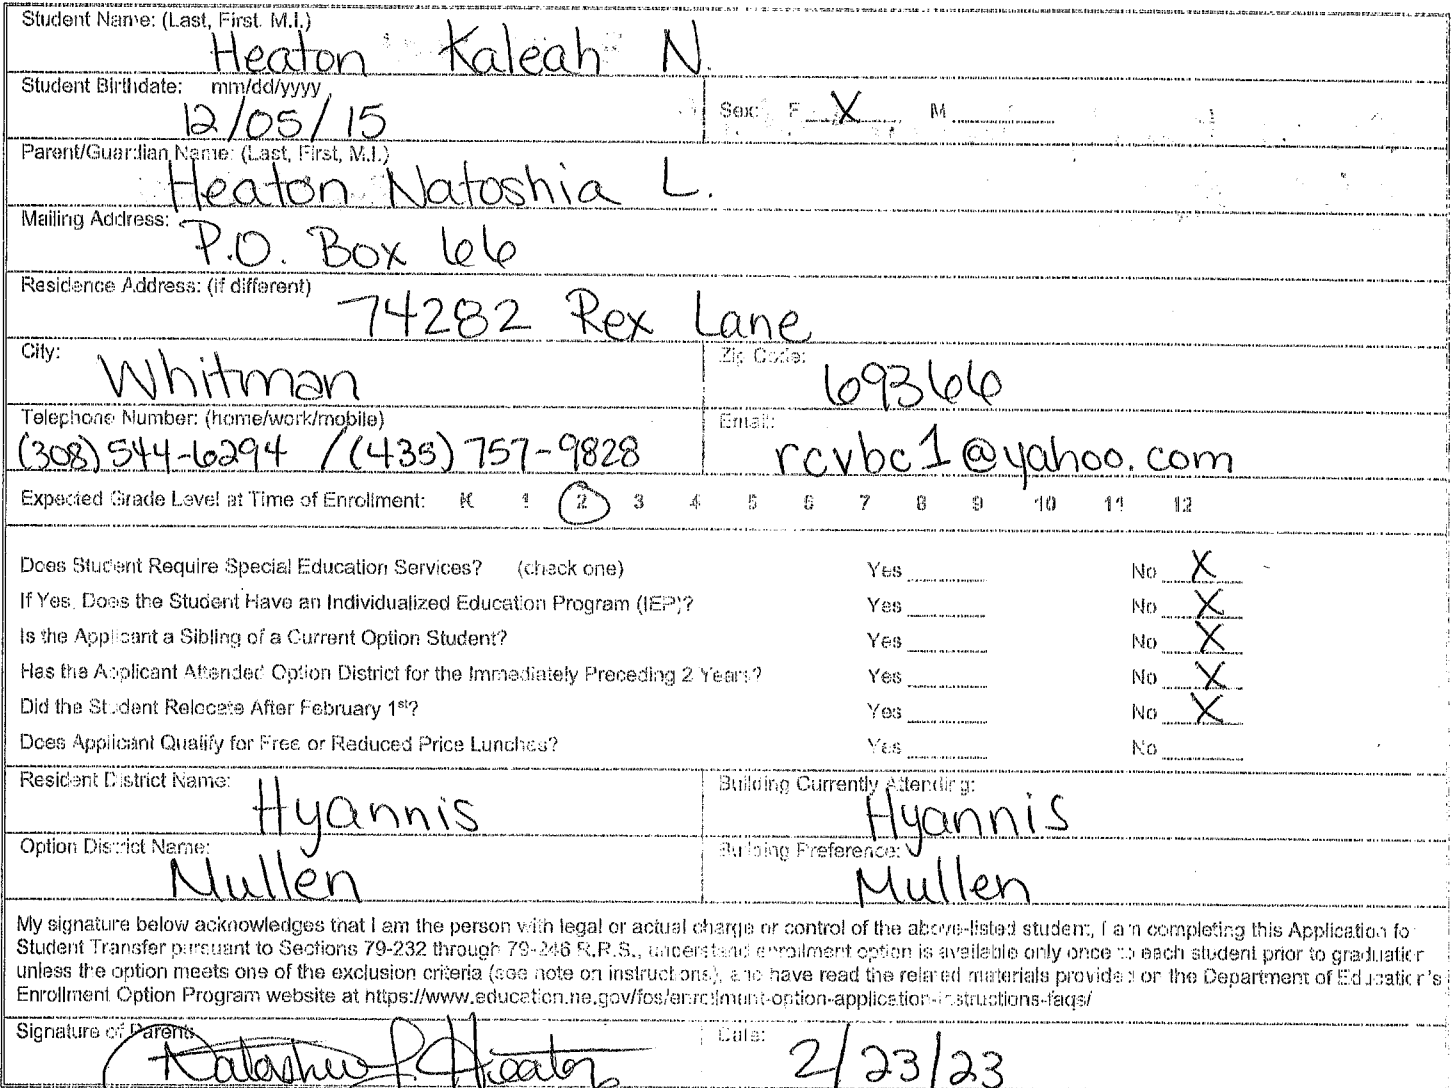 Student Name: (Last, First. M.I.)
Heaton Kaleah N.
Student Birthdate: mm/dd/yyyy
12/05/15
Sex: F X M
Parent/Guardian Name: (Last, First, M.I.)
Heaton Natoshia L.
Mailing Address:
P.O. Box 66
Residence Address: (if different)
74282 Rex Lane
City:
Whitman
Zip Code:
69366
Telephone Number: (home/work/mobile)
(308) 544-6294 / (435) 757-9828
Email:
rcvbc1@yahoo.com
Expected Grade Level at Time of Enrollment: K 1 2 3 4 5 6 7 8 9 10 11 12
Does Student Require Special Education Services? (check one) Yes No X
If Yes, Does the Student Have an Individualized Education Program (IEP)? Yes No X
Is the Applicant a Sibling of a Current Option Student? Yes No X
Has the Applicant Attended Option District for the Immediately Preceding 2 Years? Yes No X
Did the Student Relocate After February 1st? Yes No X
Does Applicant Qualify for Free or Reduced Price Lunches? Yes No
Resident District Name:
Hyannis
Building Currently Attending:
Hyannis
Option District Name:
Mullen
Building Preference:
Mullen
My signature below acknowledges that I am the person with legal or actual charge or control of the above-listed student, I am completing this Application fo
Student Transfer pursuant to Sections 79-232 through 79-246 R.R.S., understand enrollment option is available only once to each student prior to graduation
unless the option meets one of the exclusion criteria (see note on instructions), and have read the related materials provided on the Department of Education's
Enrollment Option Program website at https://www.education.ne.gov/fos/enrollment-option-application-instructions-faqs/
Signature of Parent:
Natoshia L Heaton
Date:
2/23/23